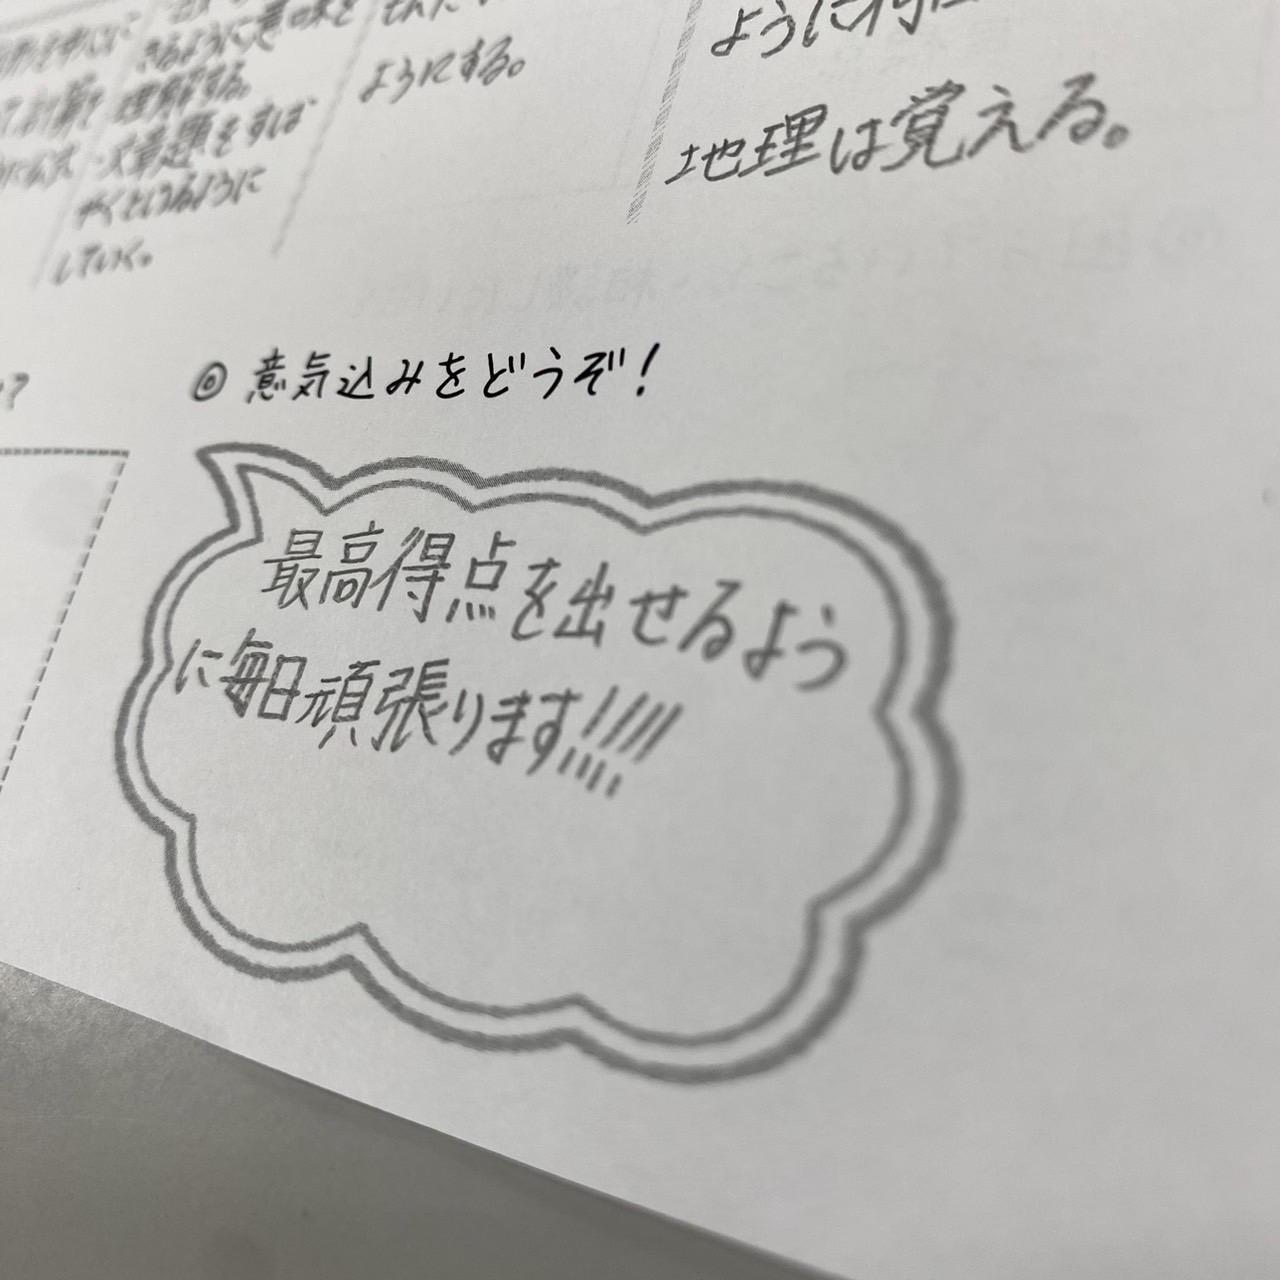 きるように意味を
理解する。
・文章題をすば
やくとけるように
していく。
ようにする。
ように特に
地理は覚える。
◎ 意気込みをどうぞ！
最高得点を出せるよう
に毎日頑張ります!!!!!